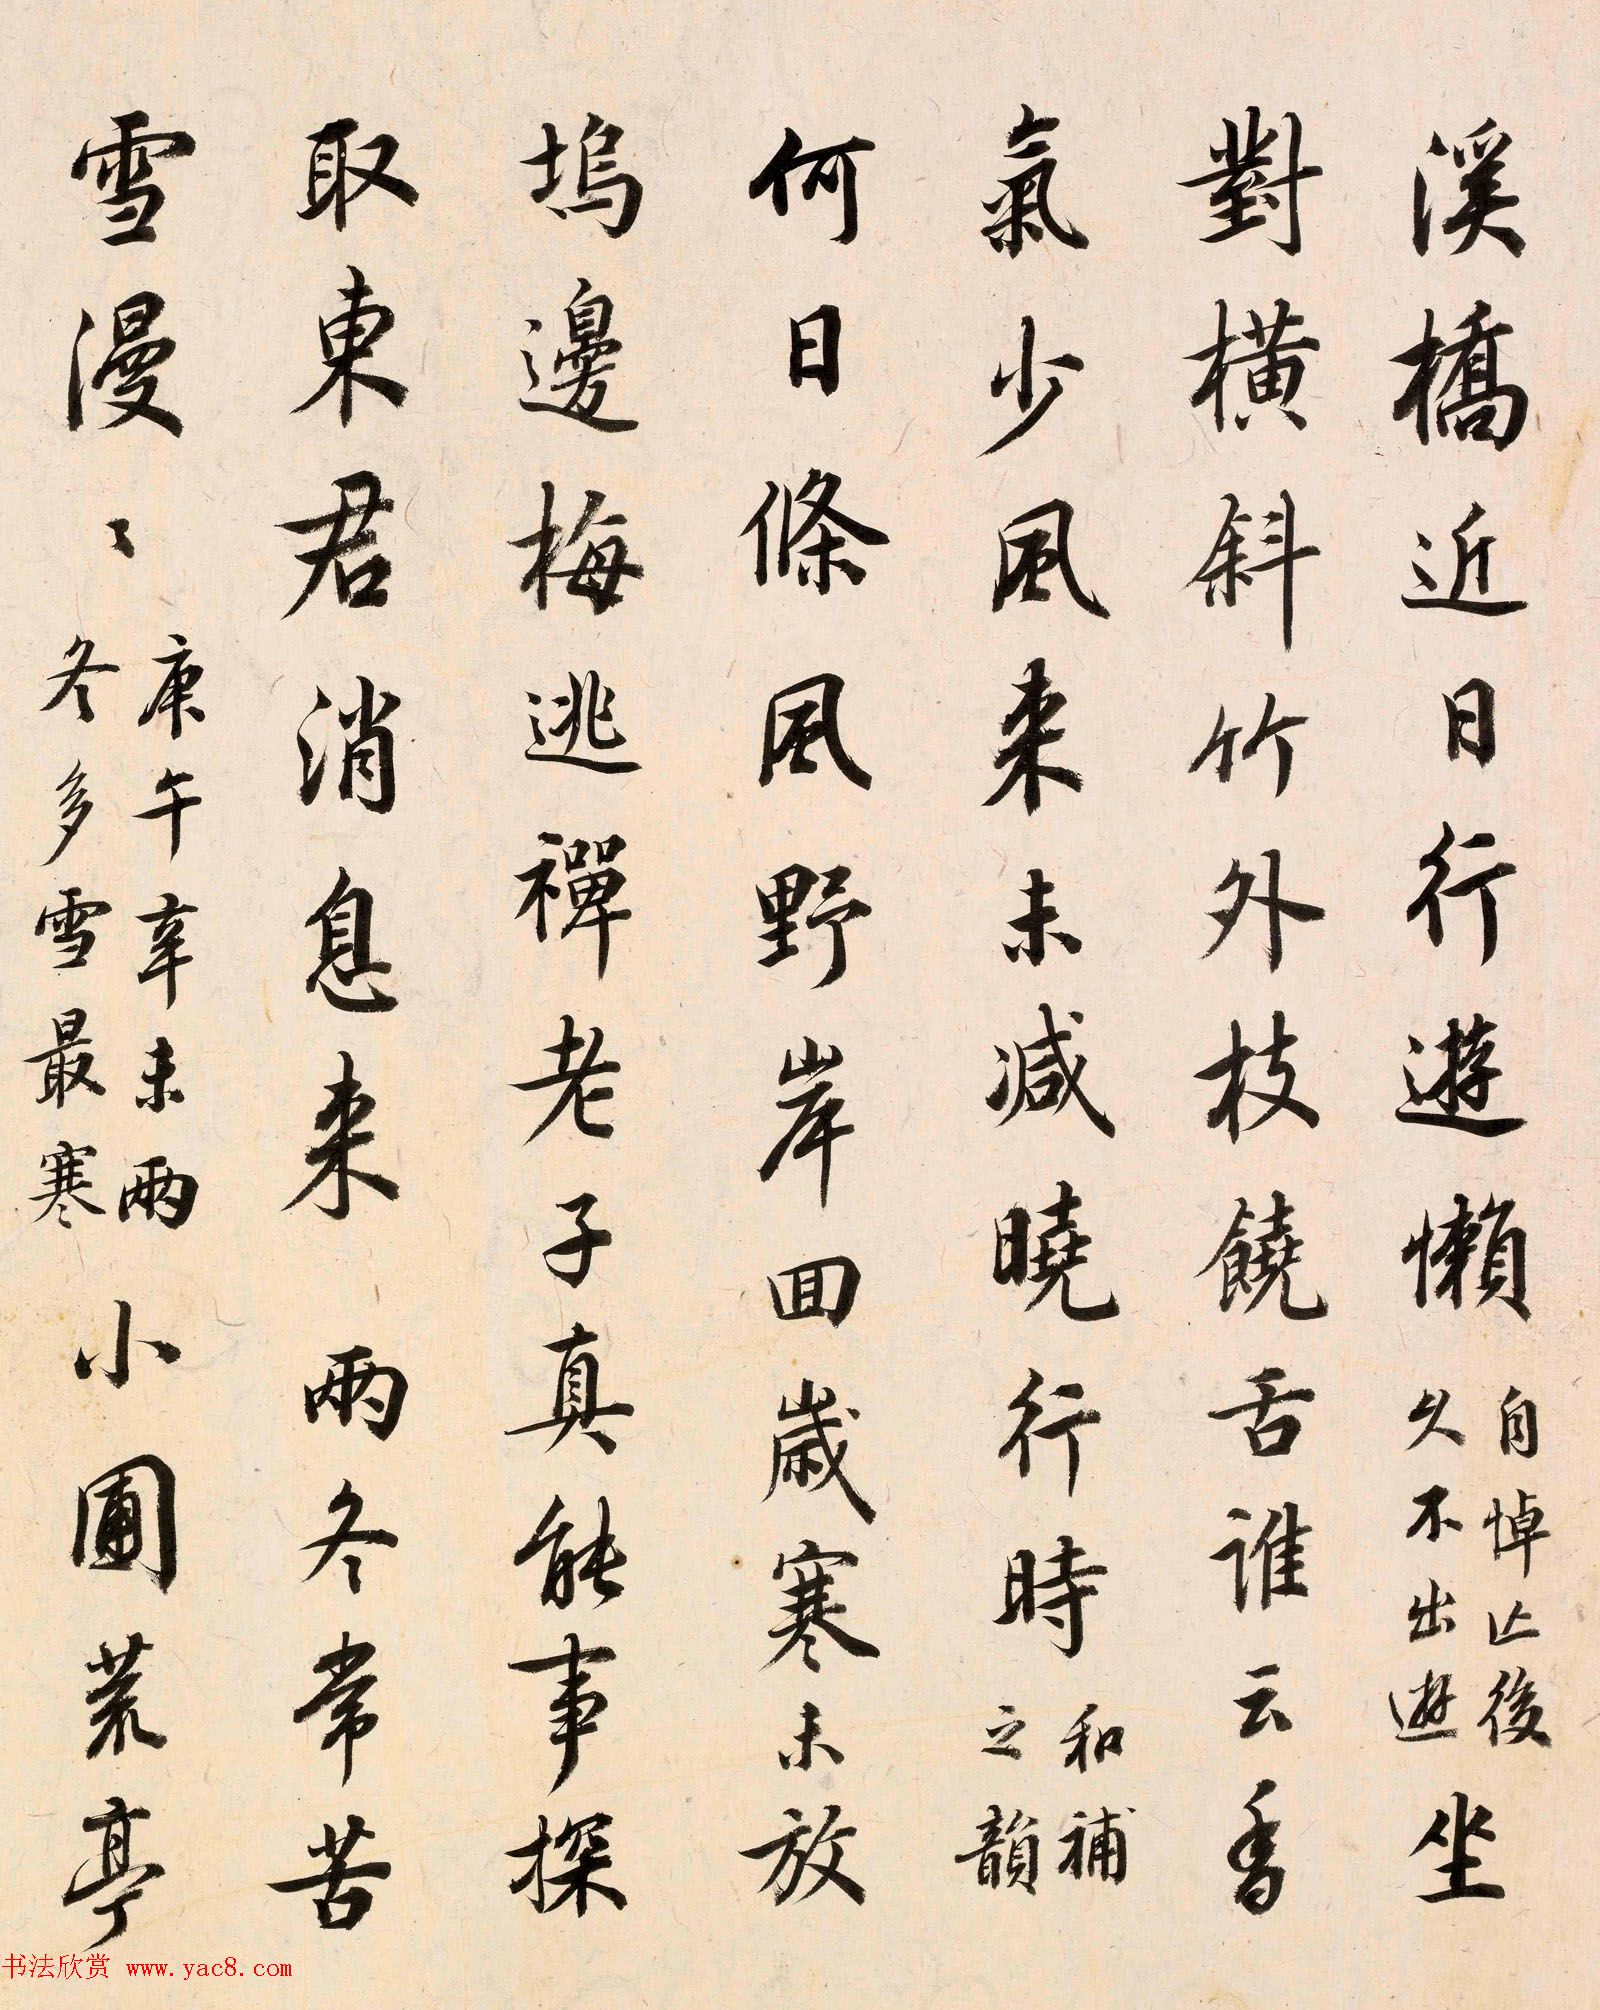 溪橋近日行遊懶自悼亡後久不出遊坐
對橫斜竹外枝饒舌誰云香
氣少風来未減曉行時和補之韻
何日條風野岸回歲寒未放
塢邊梅逃禪老子真能事探
取東君消息来 兩冬常苦
雪漫〻庚午辛未兩冬多雪最寒小圃荒亭
书法欣赏 www.yac8.com